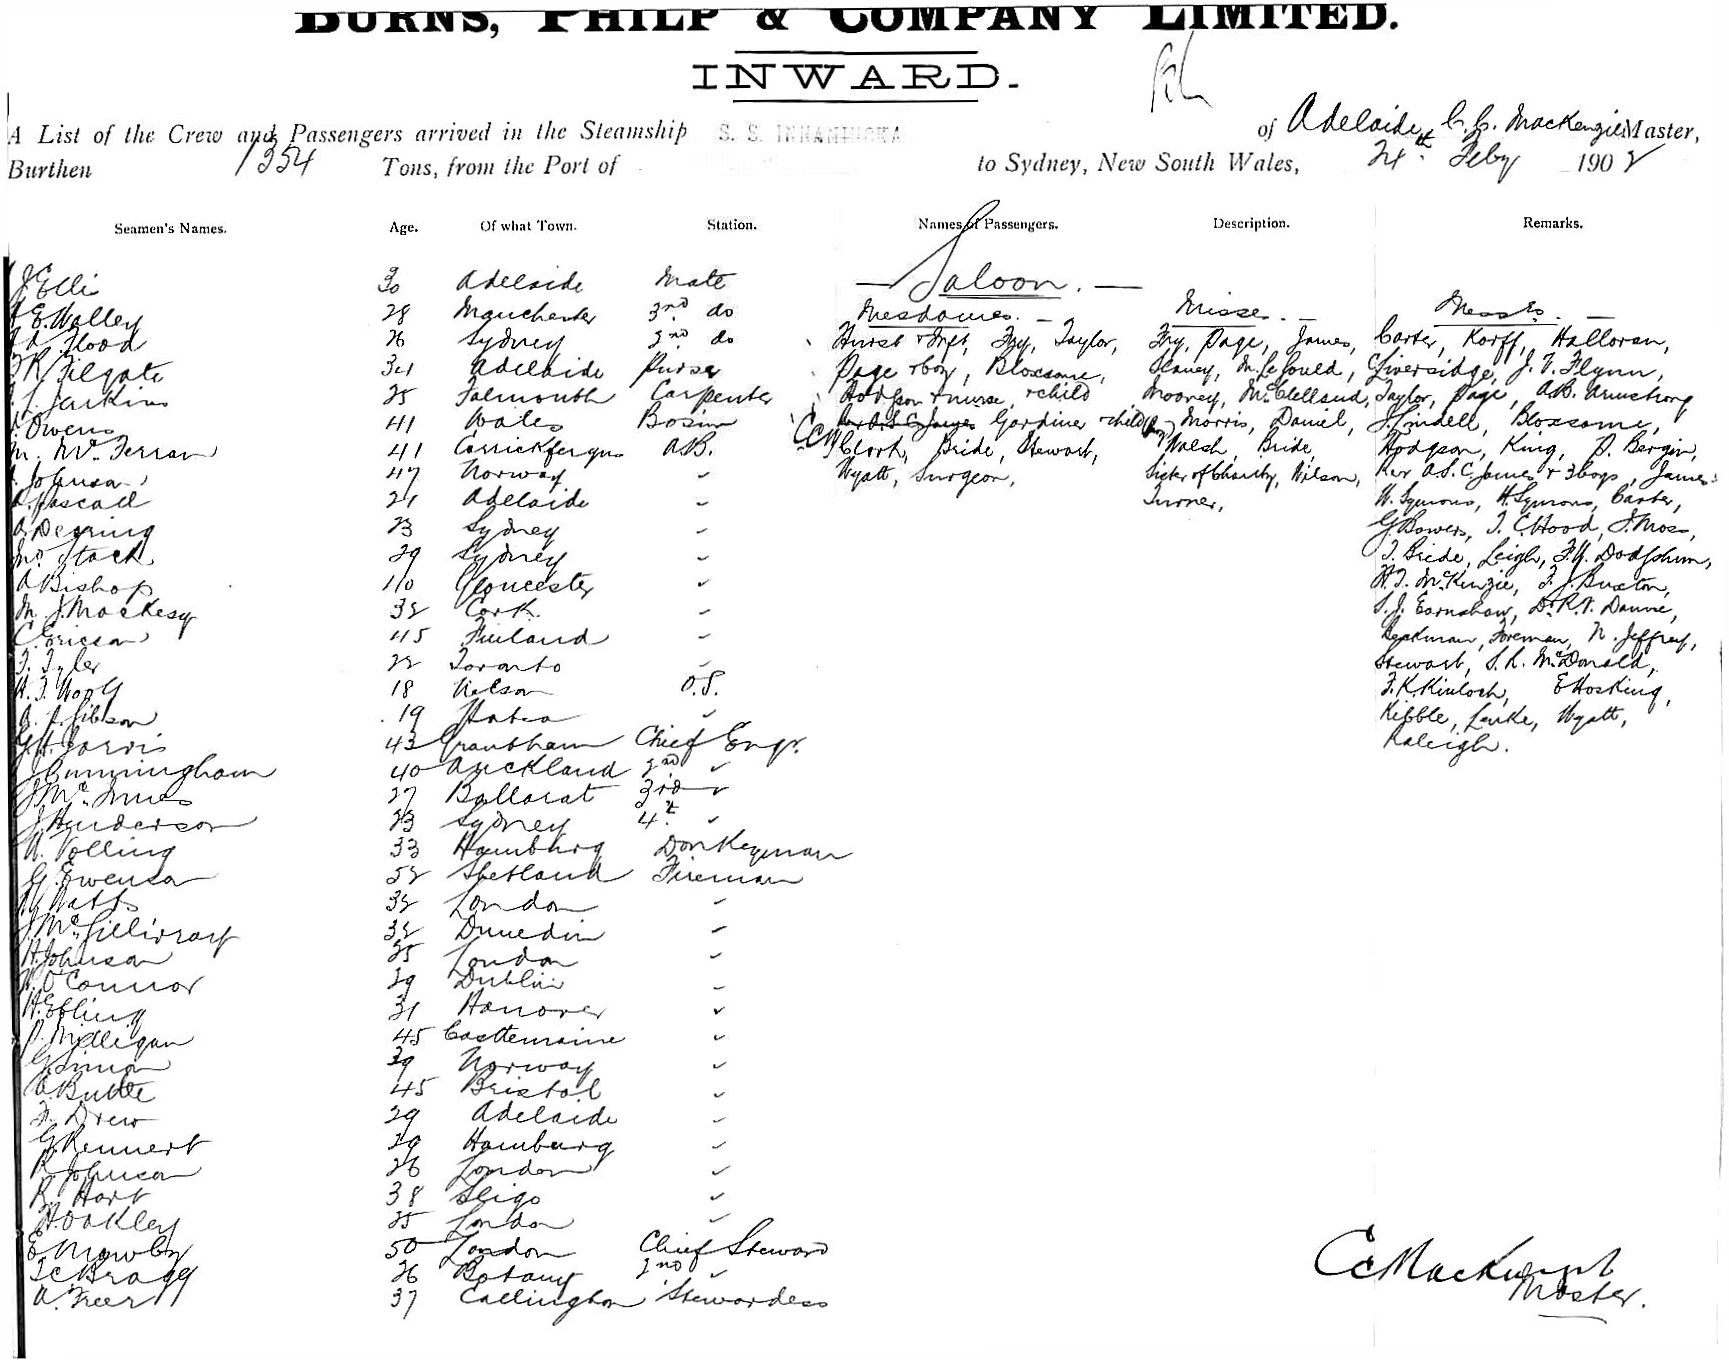 BURNS, PHILP & COMPANY LIMITED.
INWARD.
A List of the Crew and Passengers arrived in the Steamship S. S. INNAMINCKA of Adelaide, C. C. MacKenzie Master,
Burthen 1354 Tons, from the Port of to Sydney, New South Wales, 24th Feby 1902
Seamen's Names. Age. Of what Town. Station. Names of Passengers. Description. Remarks.
J Elli 30 Adelaide Mate — Saloon. —
E. Walley 28 Manchester 3rd do Mesdames. — Misses. — Messrs. —
Flood 26 Sydney 2nd do Hurst & Inft, Fry, Taylor, Fry, Page, James, Carter, Korff, Halloran,
R Filgate 34 Adelaide Purser Page & boy, Bloxsome, M. Le Gould, Liversidge, J. V. Flynn,
J. Jarkins 25 Falmouth Carpenter Hodgson & nurse & child Mooney, McClelland, Taylor, Page, A.B. Armstrong
Owens 41 Wales Bosun Gardiner & child Morris, Daniel, J. Lindell, Bloxsome,
M. McFerran 41 Carrickfergus A.B. CCM Clark, Bride, Stewart, Walsh, Bride, Hodgson, King, P. Bergin,
Johnson 47 Norway " Wyatt, Surgeon, Sister of Charity, Wilson, Rev A.S.C. James & 3 boys, James
Pascall 21 Adelaide " Turner, W. Symons, H. Symons, Carter,
A Deering 23 Sydney " G Bowers, T. C. Hood, J. Moss,
Jno Stack 29 Sydney " T. Bride, Leigh, F. H. Dodgshun,
A Bishop 40 Gloucester " H. T. McKinzie, F. J. Buxton,
M. J. Mackesy 32 Cork " S. J. Earnshaw, Dr R. V. Danne,
C. Ericson 45 Finland " Foreman, N. Jeffrey,
F. Tyler 22 Toronto " Stewart, S. R. McDonald,
H. J. Woolf 18 Nelson O.S. F. K. Kinloch, E Hosking,
A. A. Gibson 19 " Kibble, Larke, Wyatt,
G H Jarvis 43 Grantham Chief Engr. Raleigh.
J Cunningham 40 Auckland 2nd "
J McInnes 27 Ballarat 3rd "
J Henderson 23 Sydney 4th "
A. Polling 33 Hamburg Donkeyman
G. Ewenson 52 Shetland Fireman
Watts 32 London "
J McGillivray 32 Dunedin "
H. Johnson 25 London "
O'Connor 29 Dublin "
H. Ebling 31 Hanover "
P. Milligan 45 Castlemaine "
G. Simon 39 Norway "
C. Butte 45 Bristol "
F. Drew 29 Adelaide "
G. Rennert 29 Hamburg "
R. Johnson 26 London "
R. Hart 38 Sligo "
H. Oakley 25 London "
E. Mowby 50 London Chief Steward
T C Bragg 26 Botany 2nd "
A. Freer 37 Callington Stewardess
CC Mackenzie
Master.